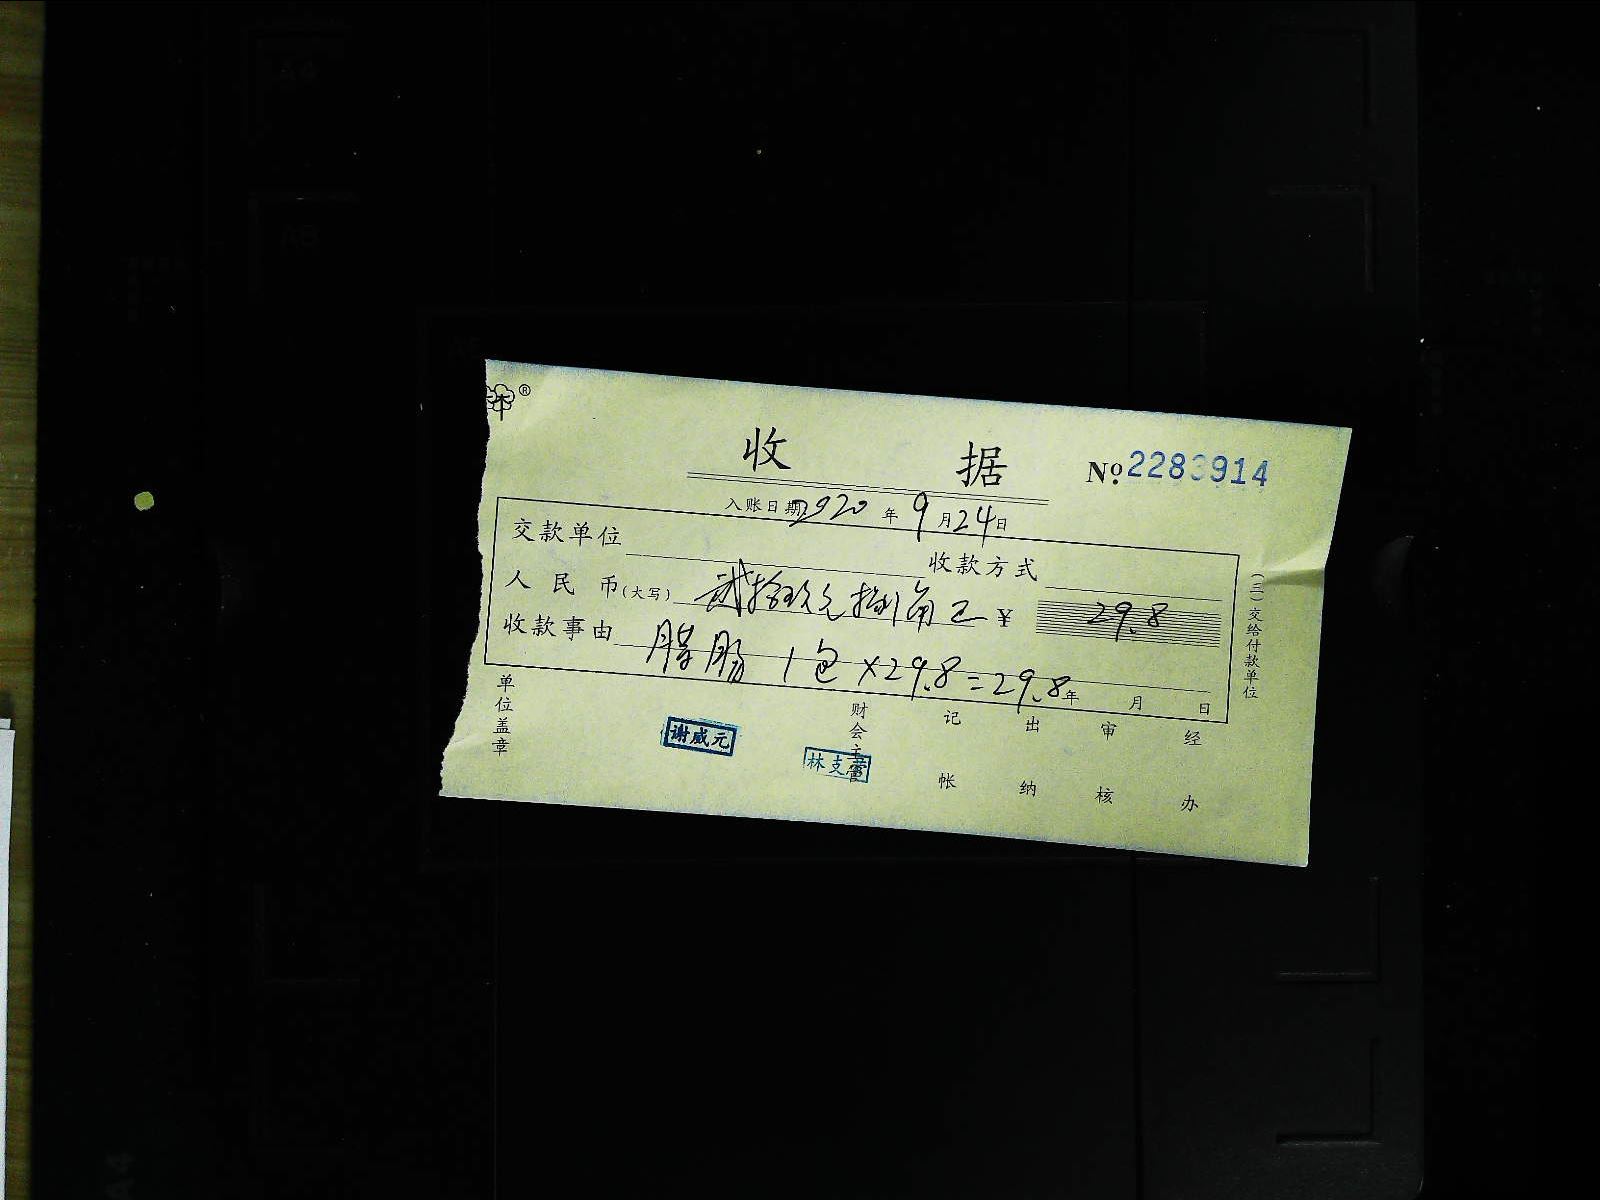 收 据 № 2283914
入账日期 2020 年 9 月 24 日
交款单位 收款方式
人民币(大写) 贰拾玖元捌角正 ¥ 29.8
收款事由 腊肠 1包×29.8=29.8 年 月 日
(三)交给付款单位
单位盖章 谢咸元 林支 财会主管 记帐 出纳 审核 经办
A4
A5
A4